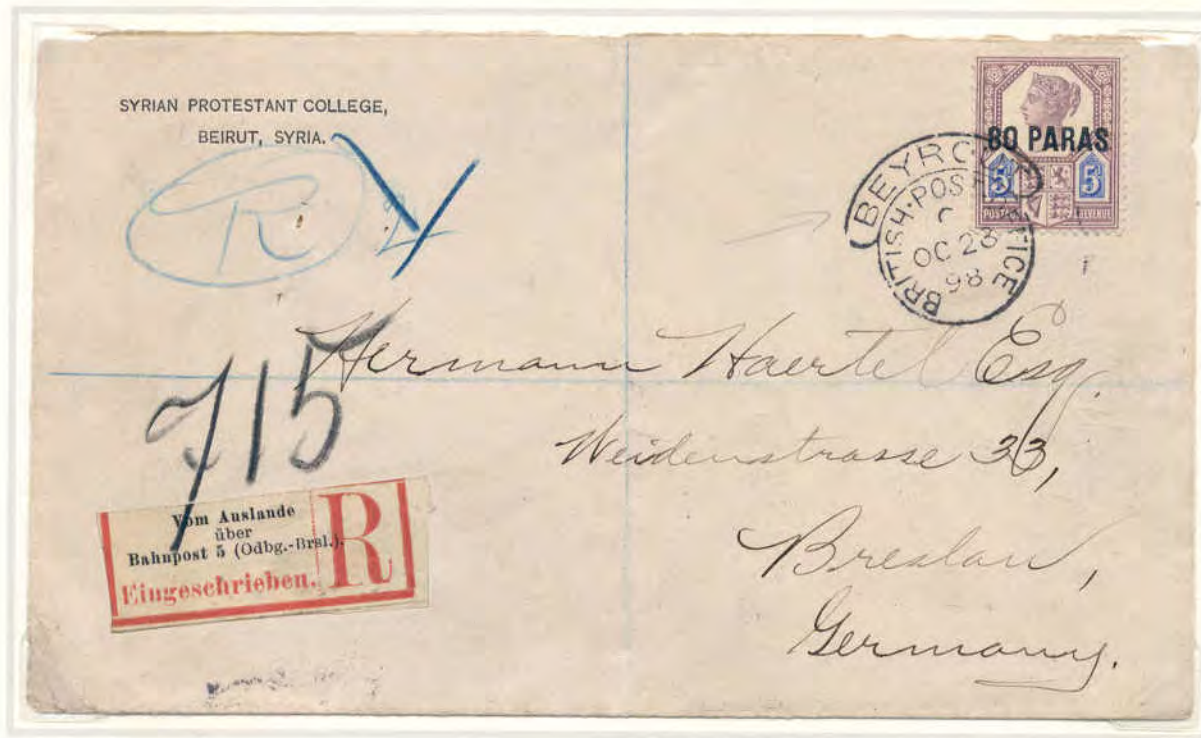 SYRIAN PROTESTANT COLLEGE,
BEIRUT, SYRIA.
R
80 PARAS
5 5
POSTAGE REVENUE
BRITISH·POST OFFICE
OC 28
98
715
Hermann Haertel Esq.
Weidenstrasse 33,
Breslau,
Germany.
Vom Auslande
über
Bahnpost 5 (Odbg.-Brsl.).
Eingeschrieben. R